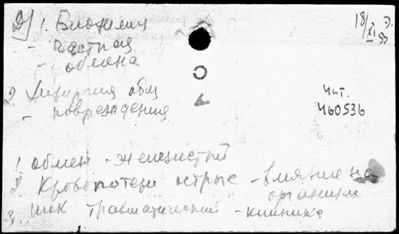 2) 1. Биохимия
- частная
- обмена
2 Хирургия общ
- повреждения
18/XI 93 Э.
Чит.
460536
1 обмен - железистый
2 Кровопотери острые - влияние на
организм
3. шок травматический - клиника